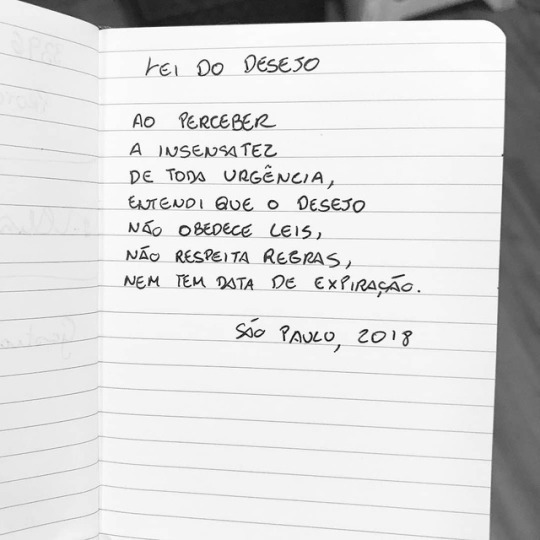 LEI DO DESEJO
AO PERCEBER
A INSENSATEZ
DE TODA URGÊNCIA,
ENTENDI QUE O DESEJO
NÃO OBEDECE LEIS,
NÃO RESPEITA REGRAS,
NEM TEM DATA DE EXPIRAÇÃO.
SÃO PAULO, 2018